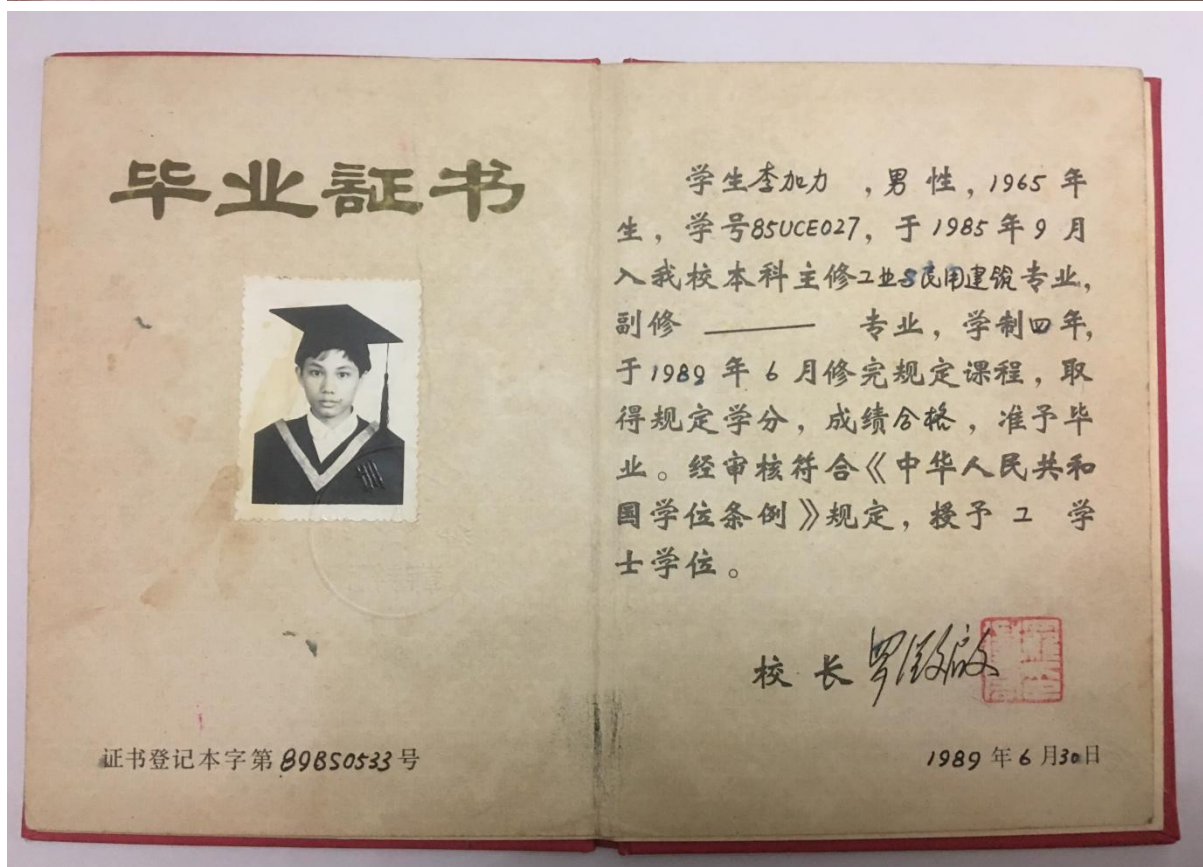 毕业証书
证书登记本字第89BS0533号
学生李加力，男性，1965年
生，学号85UCE027，于1985年9月
入我校本科主修工业与民用建筑专业，
副修 ——— 专业，学制四年，
于1989年6月修完规定课程，取
得规定学分，成绩合格，准予毕
业。经审核符合《中华人民共和
国学位条例》规定，授予 工 学
士学位。
校长
1989年6月30日